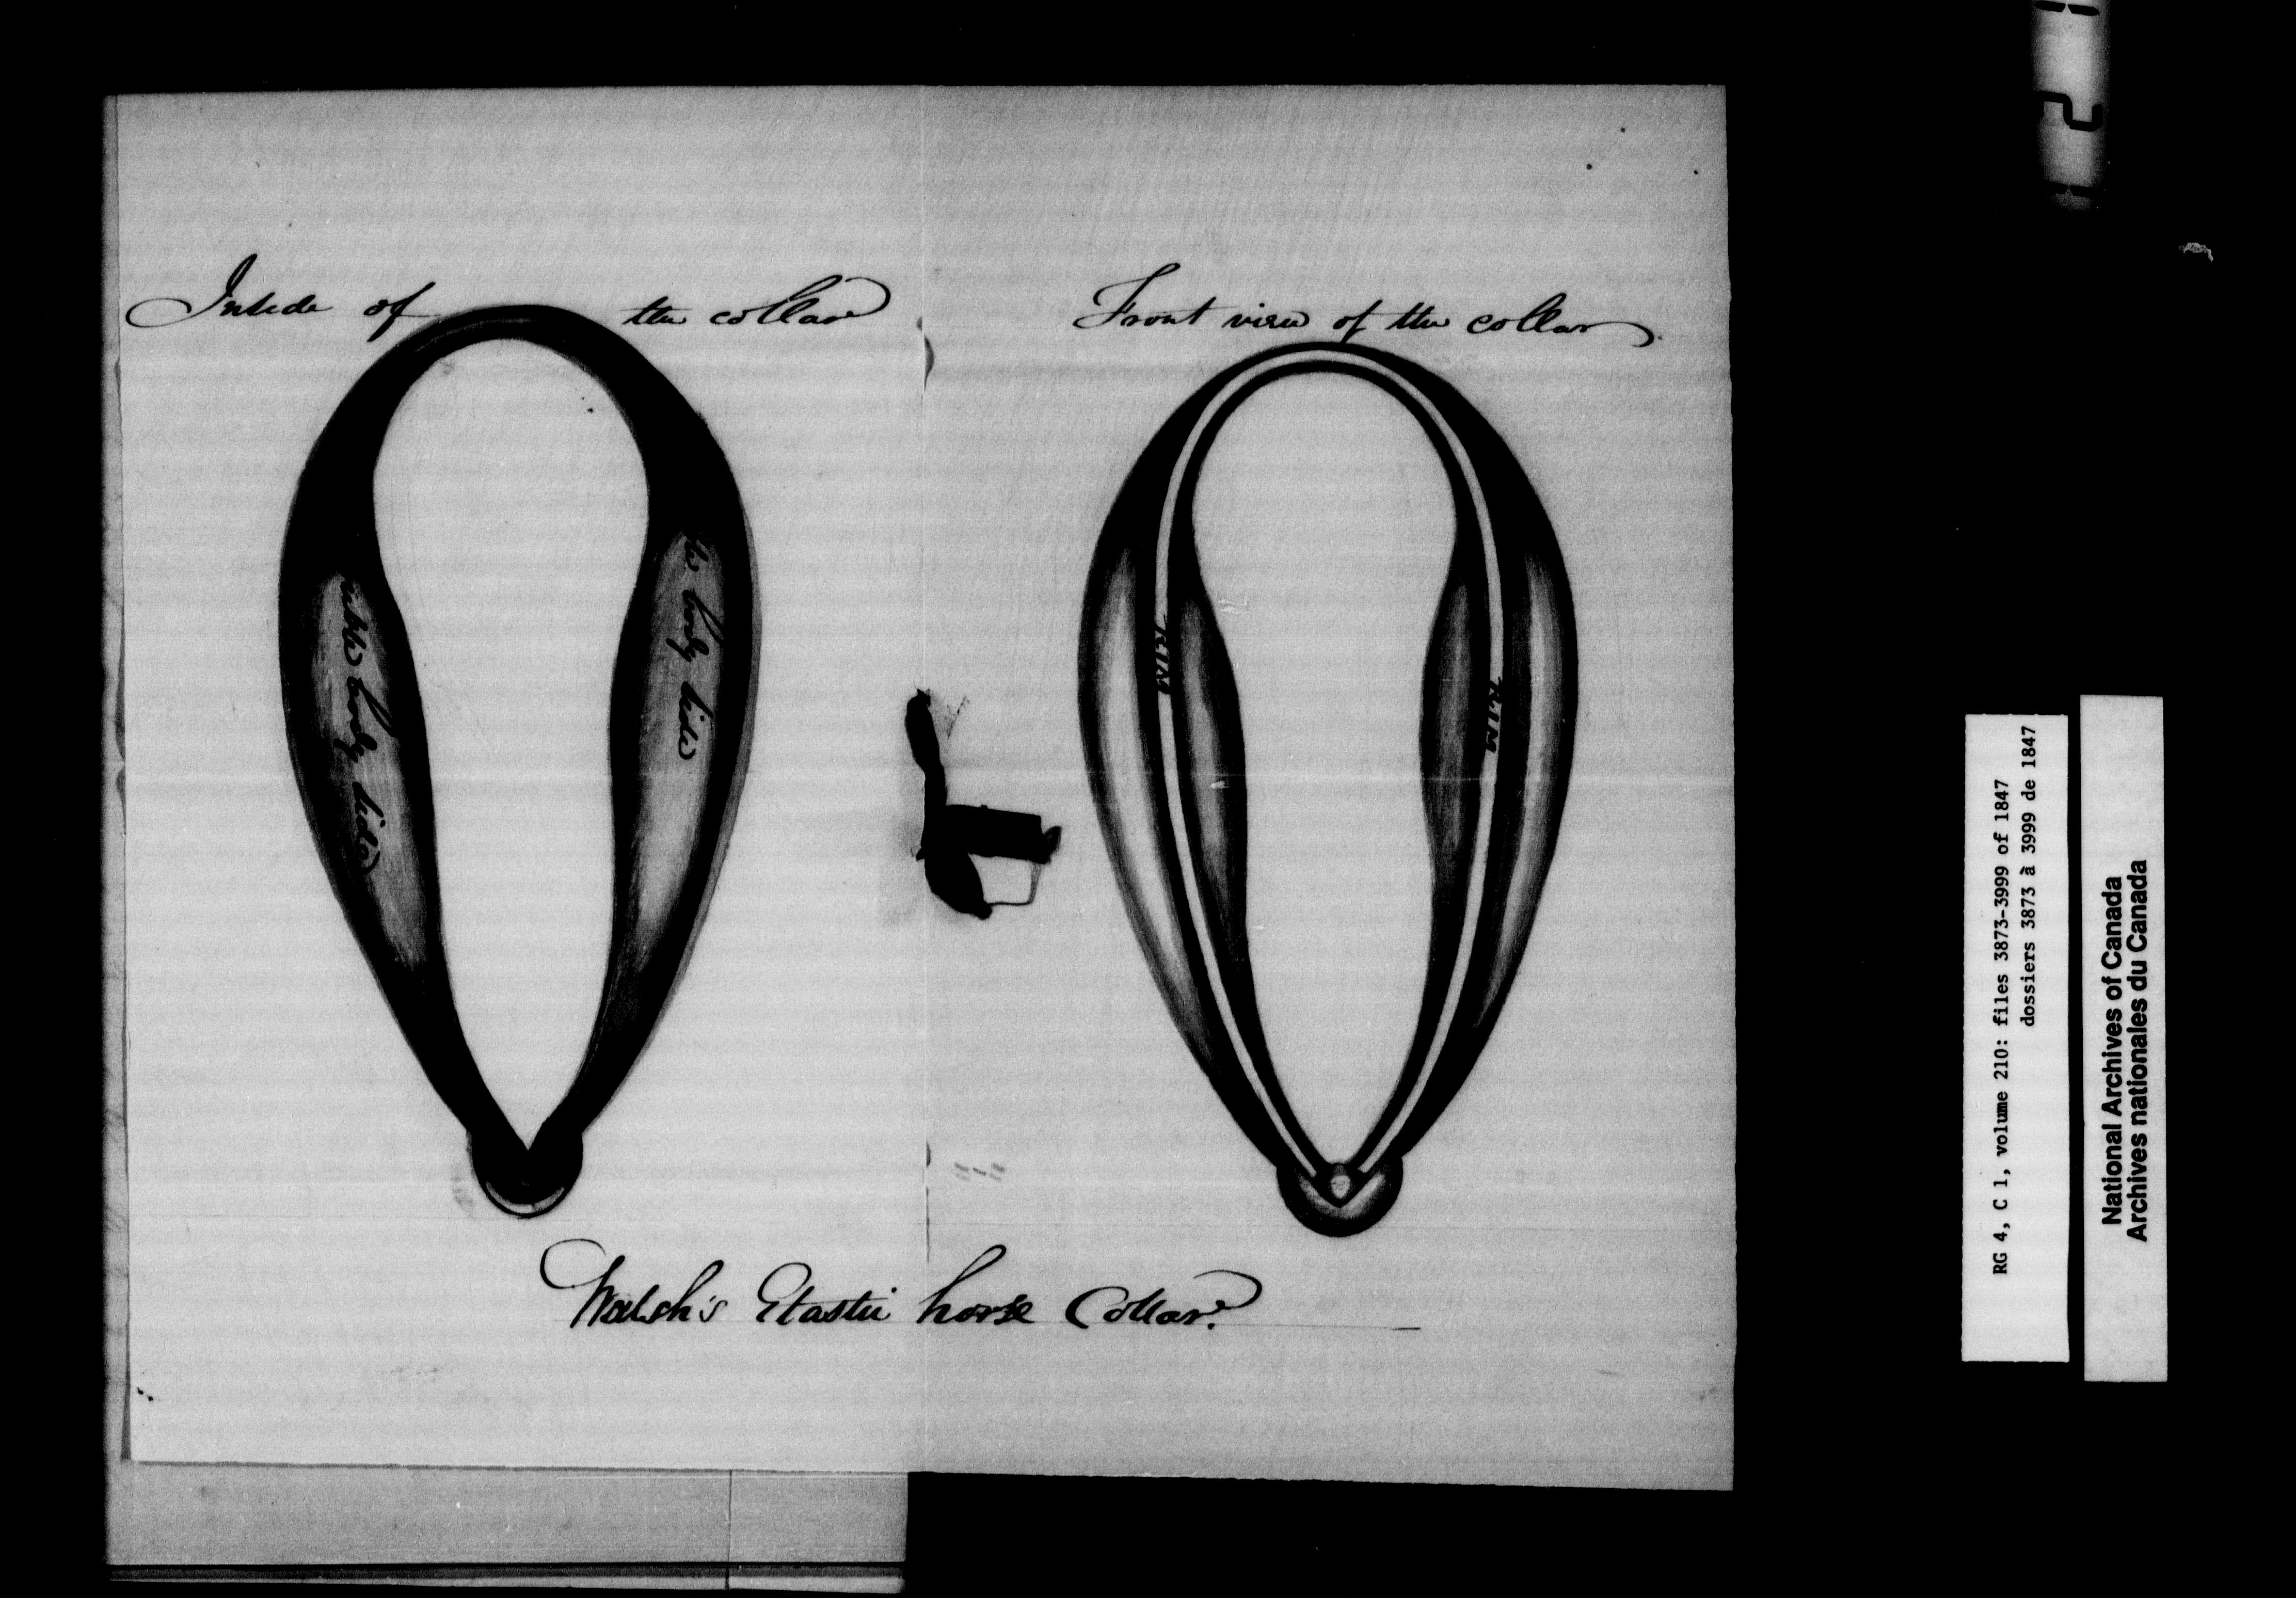 Inside of the collar
Front view of the collar
body side
body side
RIM
RIM
Walsh's Elastic horse Collar.
RG 4, C 1, volume 210: files 3873-3999 of 1847
dossiers 3873 à 3999 de 1847
National Archives of Canada
Archives nationales du Canada
2